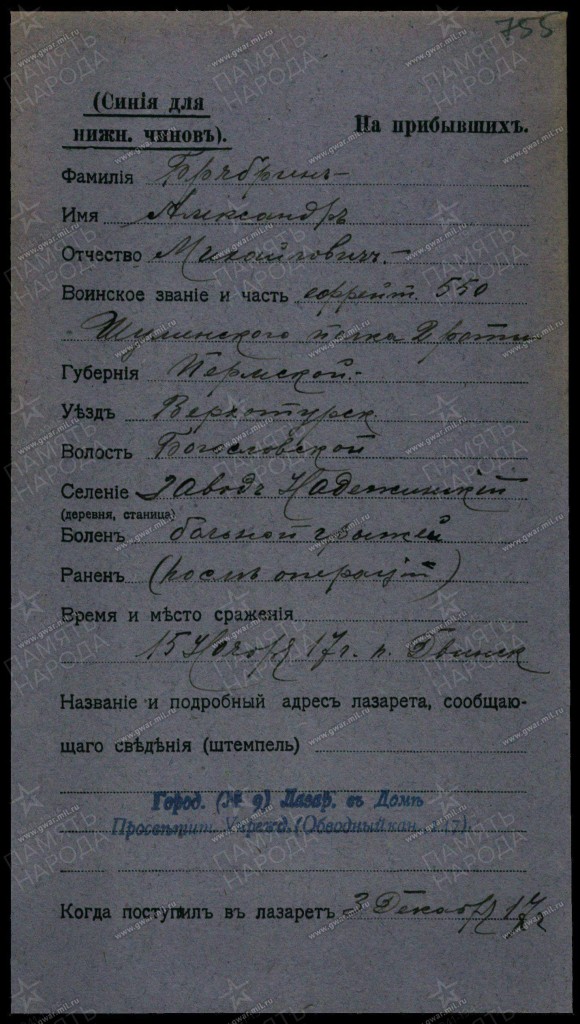 755
(Синія для
нижн. чиновъ).
На прибывшихъ.
Фамилія
Имя Александръ
Отчество Михайловичъ
Воинское званіе и часть ефрейт. 550
полка 2 роты
Губернія Пермской
Уѣздъ Верхотурск
Волость Богословской
Селеніе Заводъ Надеждинскій
(деревня, станица)
Боленъ больной грыжей
Раненъ (послѣ операцій)
Время и мѣсто сраженія
15 Ноября 17 г. г. Двинск
Названіе и подробный адресъ лазарета, сообщаю-
щаго свѣдѣнія (штемпель)
Город. (№ 9) Лазар. въ Домѣ
Просвѣтит. Учрежд. (Обводный кан. 17).
Когда поступилъ въ лазаретъ 3 Декабр 17 г
ПАМЯТЬ НАРОДА
www.gwar.mil.ru